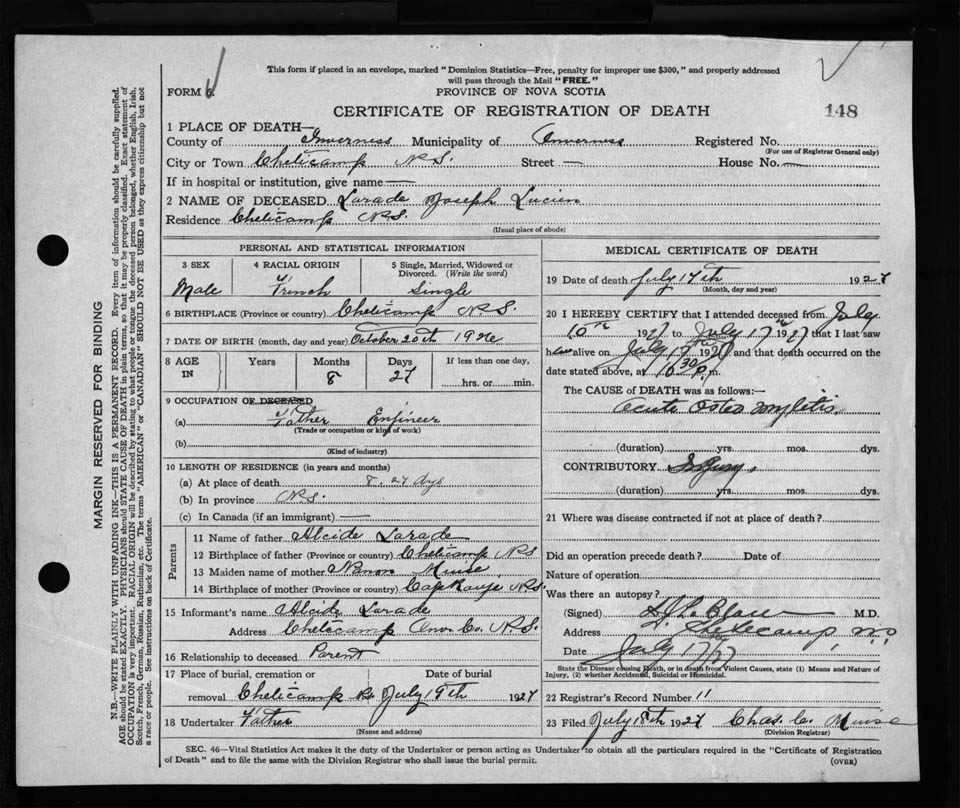 This form if placed in an envelope, marked "Dominion Statistics—Free, penalty for improper use $300," and properly addressed
will pass through the Mail "FREE."
FORM 6
PROVINCE OF NOVA SCOTIA
CERTIFICATE OF REGISTRATION OF DEATH
148
1 PLACE OF DEATH—
County of Inverness Municipality of Inverness Registered No.
(For use of Registrar General only)
City or Town Cheticamp N.S. Street — House No. —
If in hospital or institution, give name —
2 NAME OF DECEASED Larade Joseph Lucien
Residence Cheticamp N.S.
(Usual place of abode)
PERSONAL AND STATISTICAL INFORMATION
3 SEX 4 RACIAL ORIGIN 5 Single, Married, Widowed or Divorced. (Write the word)
Male French Single
6 BIRTHPLACE (Province or country) Cheticamp N.S.
7 DATE OF BIRTH (month, day and year) October 20th 1926
8 AGE IN Years Months Days If less than one day,
8 27 hrs. or min.
9 OCCUPATION OF DECEASED
(a) Father Engineer
(Trade or occupation or kind of work)
(b)
(Kind of industry)
10 LENGTH OF RESIDENCE (in years and months)
(a) At place of death 8. 27 dys
(b) In province N.S.
(c) In Canada (if an immigrant) —
Parents
11 Name of father Alcide Larade
12 Birthplace of father (Province or country) Cheticamp N.S
13 Maiden name of mother Muise
14 Birthplace of mother (Province or country) N.S.
15 Informant's name Alcide Larade
Address Cheticamp Inv. Co. N.S.
16 Relationship to deceased Parent
17 Place of burial, cremation or removal Date of burial
Cheticamp N.S. July 19th 1927
18 Undertaker Father
(Name and address)
MEDICAL CERTIFICATE OF DEATH
19 Date of death July 17th 1927
(Month, day and year)
20 I HEREBY CERTIFY that I attended deceased from July
10th 1927 to July 17th 1927 that I last saw
h alive on July 17th 1927 and that death occurred on the
date stated above, at 10 30 p. m.
The CAUSE of DEATH was as follows:—
Acute Osteo myletis
(duration) yrs. mos. dys.
CONTRIBUTORY Injury.
(duration) yrs. mos. dys.
21 Where was disease contracted if not at place of death?
Did an operation precede death? Date of
Nature of operation
Was there an autopsy?
(Signed) LeBlanc M.D.
Address Cheticamp
Date July 17/27
State the Disease causing Death, or in death from Violent Causes, state (1) Means and Nature of Injury, (2) whether Accidental, Suicidal or Homicidal.
22 Registrar's Record Number 11
23 Filed July 18th 1927 Chas. C. Muise
(Division Registrar)
SEC. 46—Vital Statistics Act makes it the duty of the Undertaker or person acting as Undertaker to obtain all the particulars required in the "Certificate of Registration
of Death" and to file the same with the Division Registrar who shall issue the burial permit.
(OVER)
MARGIN RESERVED FOR BINDING
N.B.—WRITE PLAINLY WITH UNFADING INK—THIS IS A PERMANENT RECORD. Every item of information should be carefully supplied.
AGE should be stated EXACTLY. PHYSICIANS should STATE CAUSE OF DEATH in plain terms, so that it may be properly classified. Exact statement of
OCCUPATION is very important. RACIAL ORIGIN will be described by stating to what people or tongue the deceased person belonged, whether English, Irish,
Scotch, French, German, Russian, Ruthenian, etc. The terms "AMERICAN" or "CANADIAN" SHOULD NOT BE USED as they express citizenship but not
a race or people. See instructions on back of Certificate.